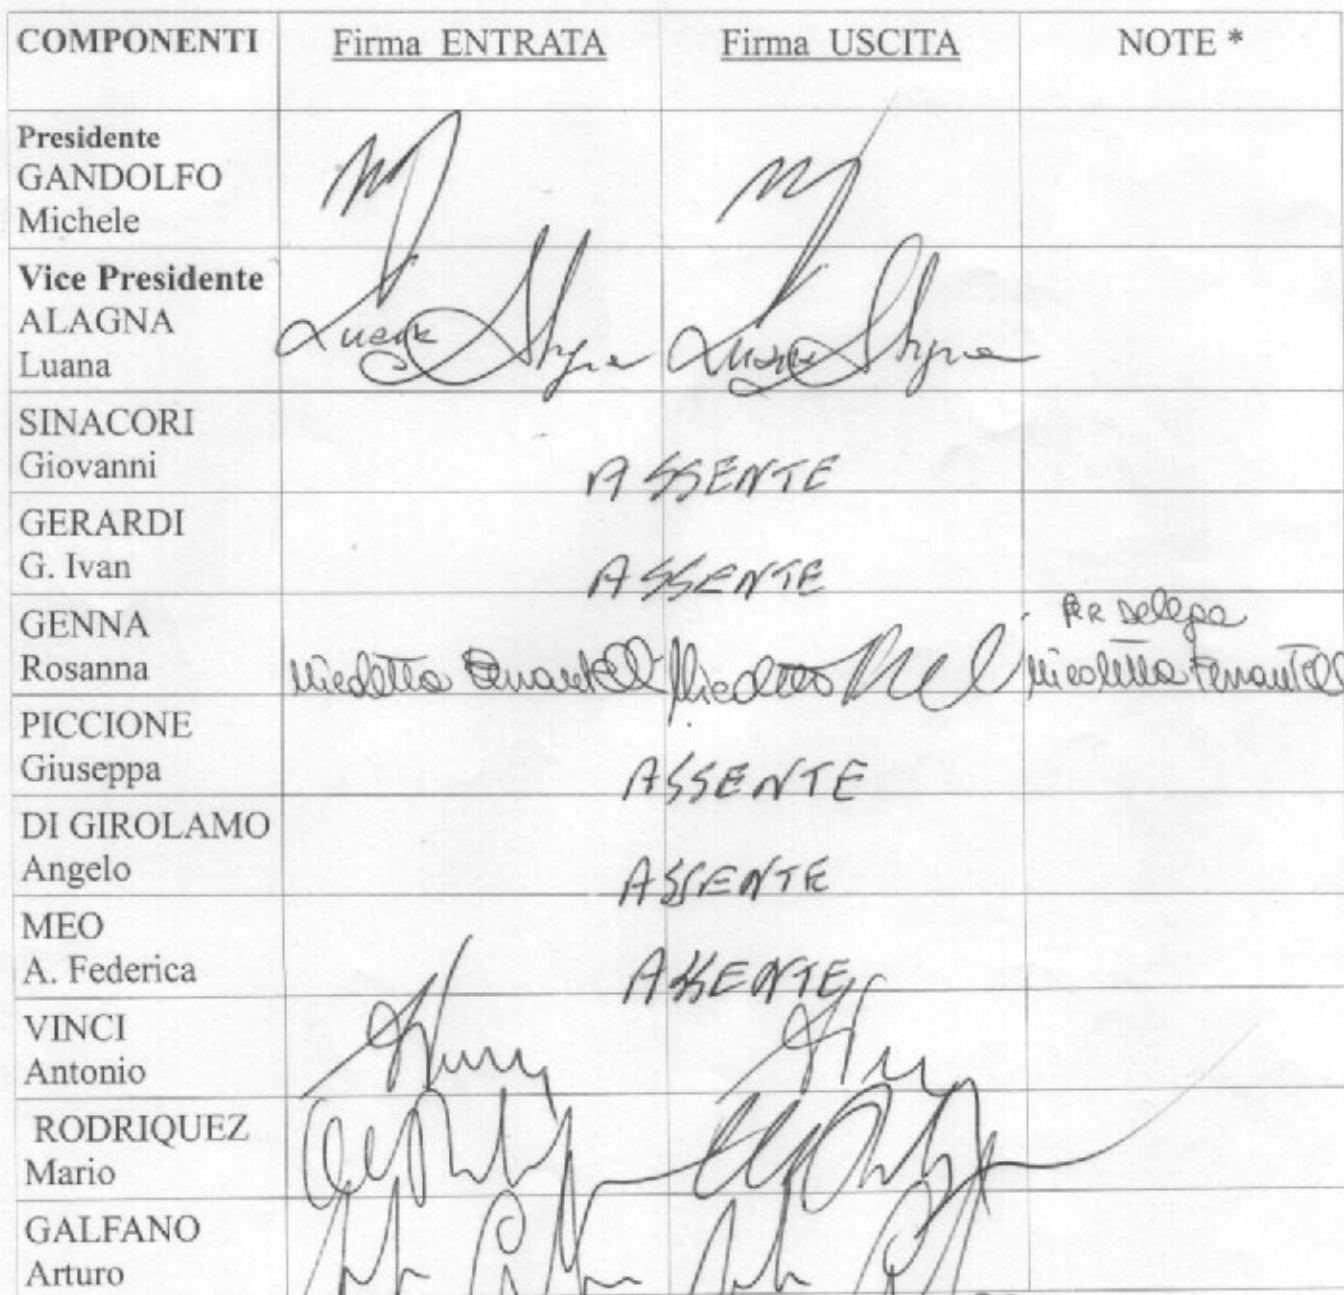 COMPONENTI Firma ENTRATA Firma USCITA NOTE *
Presidente
GANDOLFO
Michele
Vice Presidente
ALAGNA
Luana Luana Luana
SINACORI
Giovanni ASSENTE
GERARDI
G. Ivan ASSENTE
GENNA Per delega
Rosanna Nicoletta Ferrantelli Nicoletta Nicoletta Ferrantelli
PICCIONE
Giuseppa ASSENTE
DI GIROLAMO
Angelo ASSENTE
MEO
A. Federica ASSENTE
VINCI
Antonio
RODRIQUEZ
Mario
GALFANO
Arturo